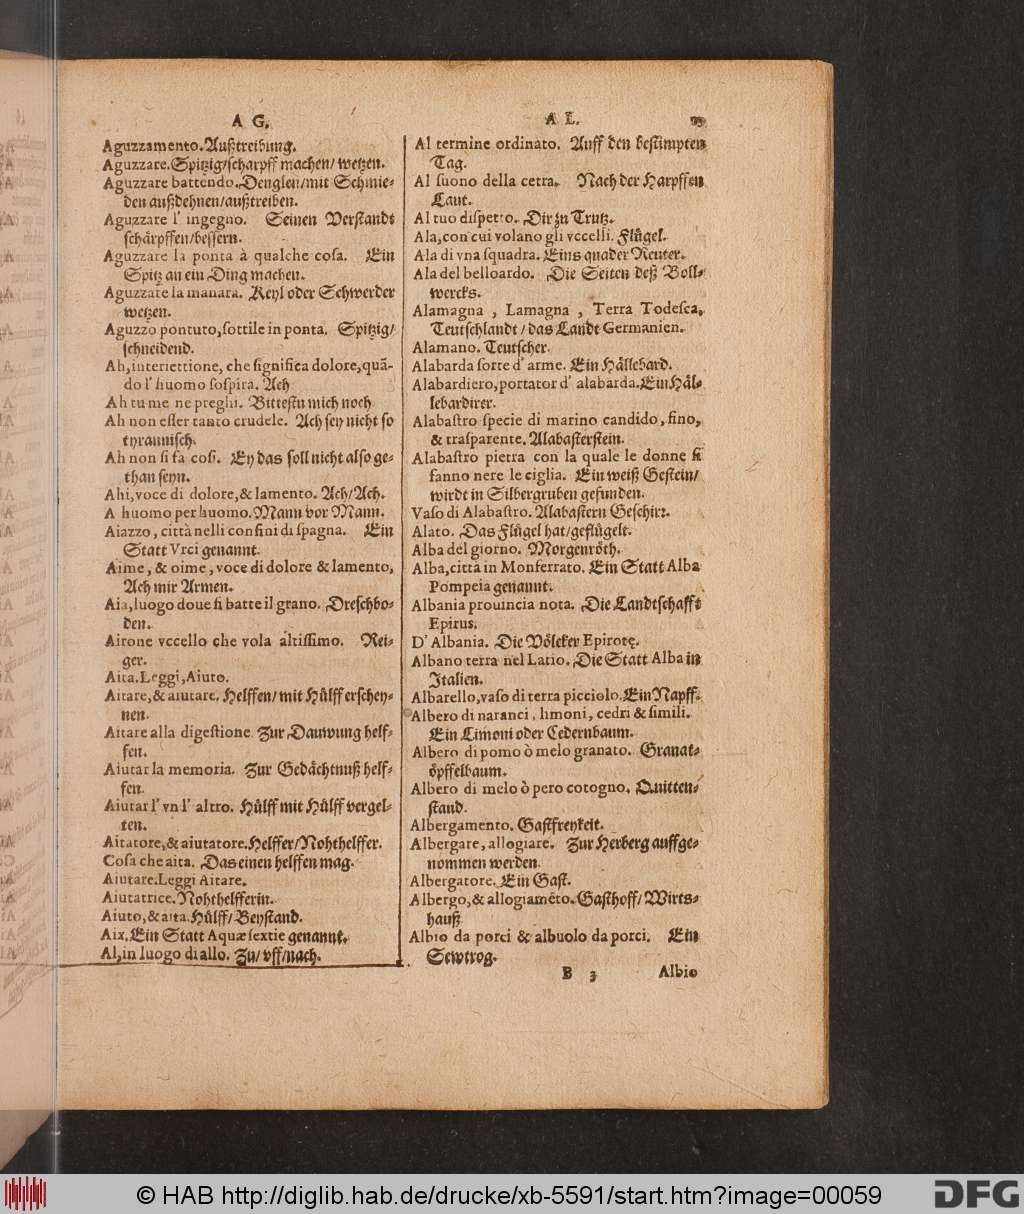 A G.
Aguzzamento. Außtreibung.
Aguzzare. Spitzig/scharpff machen/ wetzen.
Aguzzare battendo. Denglen/mit Schmie-
den außdehnen/außtreiben.
Aguzzare l' ingegno. Seinen Verstandt
schärpffen/bessern.
Aguzzare la ponta à qualche cosa. Ein
Spitz an ein Ding machen.
Aguzzare la manara. Keyl oder Schwerder
wetzen.
Aguzzo pontuto, sottile in ponta. Spitzig/
schneidend.
Ah, interiettione, che significa dolore, quã-
do l' huomo sospira. Ach
Ah tu me ne preghi. Bittestu mich noch
Ah non esser tanto crudele. Ach sey nicht so
tyrannisch.
Ah non si fa cosi. Ey das soll nicht also ge-
than seyn.
Ahi, voce di dolore, & lamento. Ach/Ach.
A huomo per huomo. Mann vor Mann.
Aiazzo, città nelli confini di spagna. Ein
Statt Vrci genannt.
Aime, & oime, voce di dolore & lamento,
Ach mir Armen.
Aia, luogo doue si batte il grano. Dreschbo-
den.
Airone vccello che vola altissimo. Rei-
ger.
Aita. Leggi, Aiuto.
Aitare, & aiutare. Helffen/ mit Hülff erschey-
nen.
Aitare alla digestione Zur Dauwung helf-
fen.
Aiutar la memoria. Zur Gedächtnuß helf-
fen.
Aiutar l' vn l' altro. Hülff mit Hülff vergel-
ten.
Aitatore, & aiutatore. Helffer/Nohthelffer.
Cosa che aita. Das einen helffen mag.
Aiutare. Leggi Aitare.
Aiutatrice. Nohthelfferin.
Aiuto, & aita. Hülff/ Beystand.
Aix. Ein Statt Aquæ sextie genannt.
Al, in luogo di allo. Zu/ vff/nach.
A L.
Al termine ordinato. Auff den bestimpten
Tag.
Al suono della cetra. Nach der Harpffen
Laut.
Al tuo dispetto. Dir zu Trutz.
Ala, con cui volano gli vccelli. Flügel.
Ala di vna squadra. Eins quader Reuter.
Ala del belloardo. Die Seiten deß Boll-
wercks.
Alamagna, Lamagna, Terra Todesca,
Teutschlandt / das Landt Germanien.
Alamano. Teutscher.
Alabarda sorte d' arme. Ein Hällebard.
Alabardiero, portator d' alabarda. Ein Häl-
lebardirer.
Alabastro specie di marino candido, fino,
& trasparente. Alabasterstein.
Alabastro pietra con la quale le donne si
fanno nere le ciglia. Ein weiß Gestein/
wirdt in Silbergruben gefunden.
Vaso di Alabastro. Alabastern Geschirr.
Alato. Das Flügel hat/geflügelt.
Alba del giorno. Morgenröth.
Alba, città in Monferrato. Ein Statt Alba
Pompeia genannt.
Albania prouincia nota. Die Landtschafft
Epirus.
D' Albania. Die Völcker Epirotę.
Albano terra nel Latio. Die Statt Alba in
Italien.
Albarello, vaso di terra picciolo. Ein Napff.
Albero di naranci, limoni, cedri & simili.
Ein Limoni oder Cedernbaum.
Albero di pomo ò melo granato. Granat-
öpffelbaum.
Albero di melo ò pero cotogno. Quitten-
stand.
Albergamento. Gastfreykeit.
Albergare, allogiare. Zur Herberg auffge-
nommen werden.
Albergatore. Ein Gast.
Albergo, & allogiamẽto. Gasthoff/ Wirts-
hauß
Albio da porci & albuolo da porci. Ein
Sewtrog.
B 3 Albio
© HAB http://diglib.hab.de/drucke/xb-5591/start.htm?image=00059
DFG